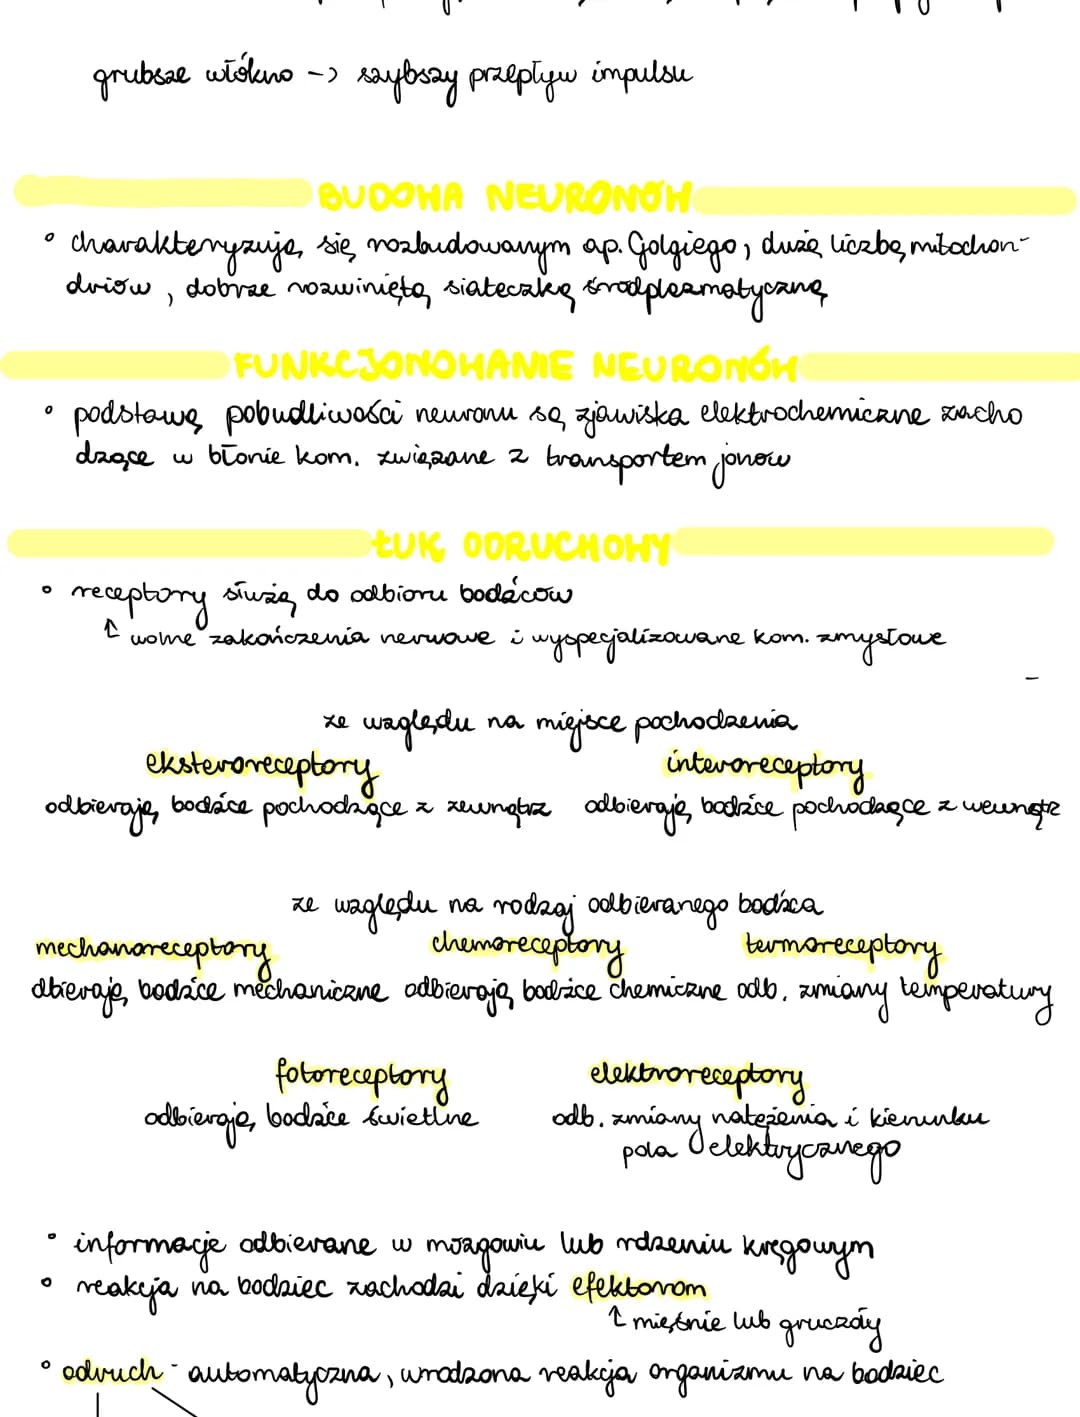 grubsze włókno -> szybszy przepływ impulsu
BUDOWA NEURONÓW
• charakteryzują się rozbudowanym ap. Golgiego, dużą liczbę mitochon-
driów, dobrze rozwiniętą siateczką śródplazmatyczną
FUNKCJONOWANIE NEURONÓW
• podstawą pobudliwości neuronu są zjawiska elektrochemiczne zacho
dzące w błonie kom. związane z transportem jonów
ŁUK ODRUCHOWY
• receptory służą do odbioru bodźców
↑ wolne zakończenia nerwowe i wyspecjalizowane kom. zmysłowe
ze względu na miejsce pochodzenia
eksteroreceptory interoreceptory
odbierają bodźce pochodzące z zewnątrz odbierają bodźce pochodzące z wewnątrz
ze względu na rodzaj odbieranego bodźca
mechanoreceptory chemoreceptory termoreceptory
dbierają bodźce mechaniczne odbierają bodźce chemiczne odb. zmiany temperatury
fotoreceptory elektroreceptory
odbierają bodźce świetlne odb. zmiany natężenia i kierunku
pola elektrycznego
• informacje odbierane w mózgowiu lub rdzeniu kręgowym
• reakcja na bodziec zachodzi dzięki efektorom
↑ mięśnie lub gruczoły
• odruch - automatyczna, wrodzona reakcja organizmu na bodziec